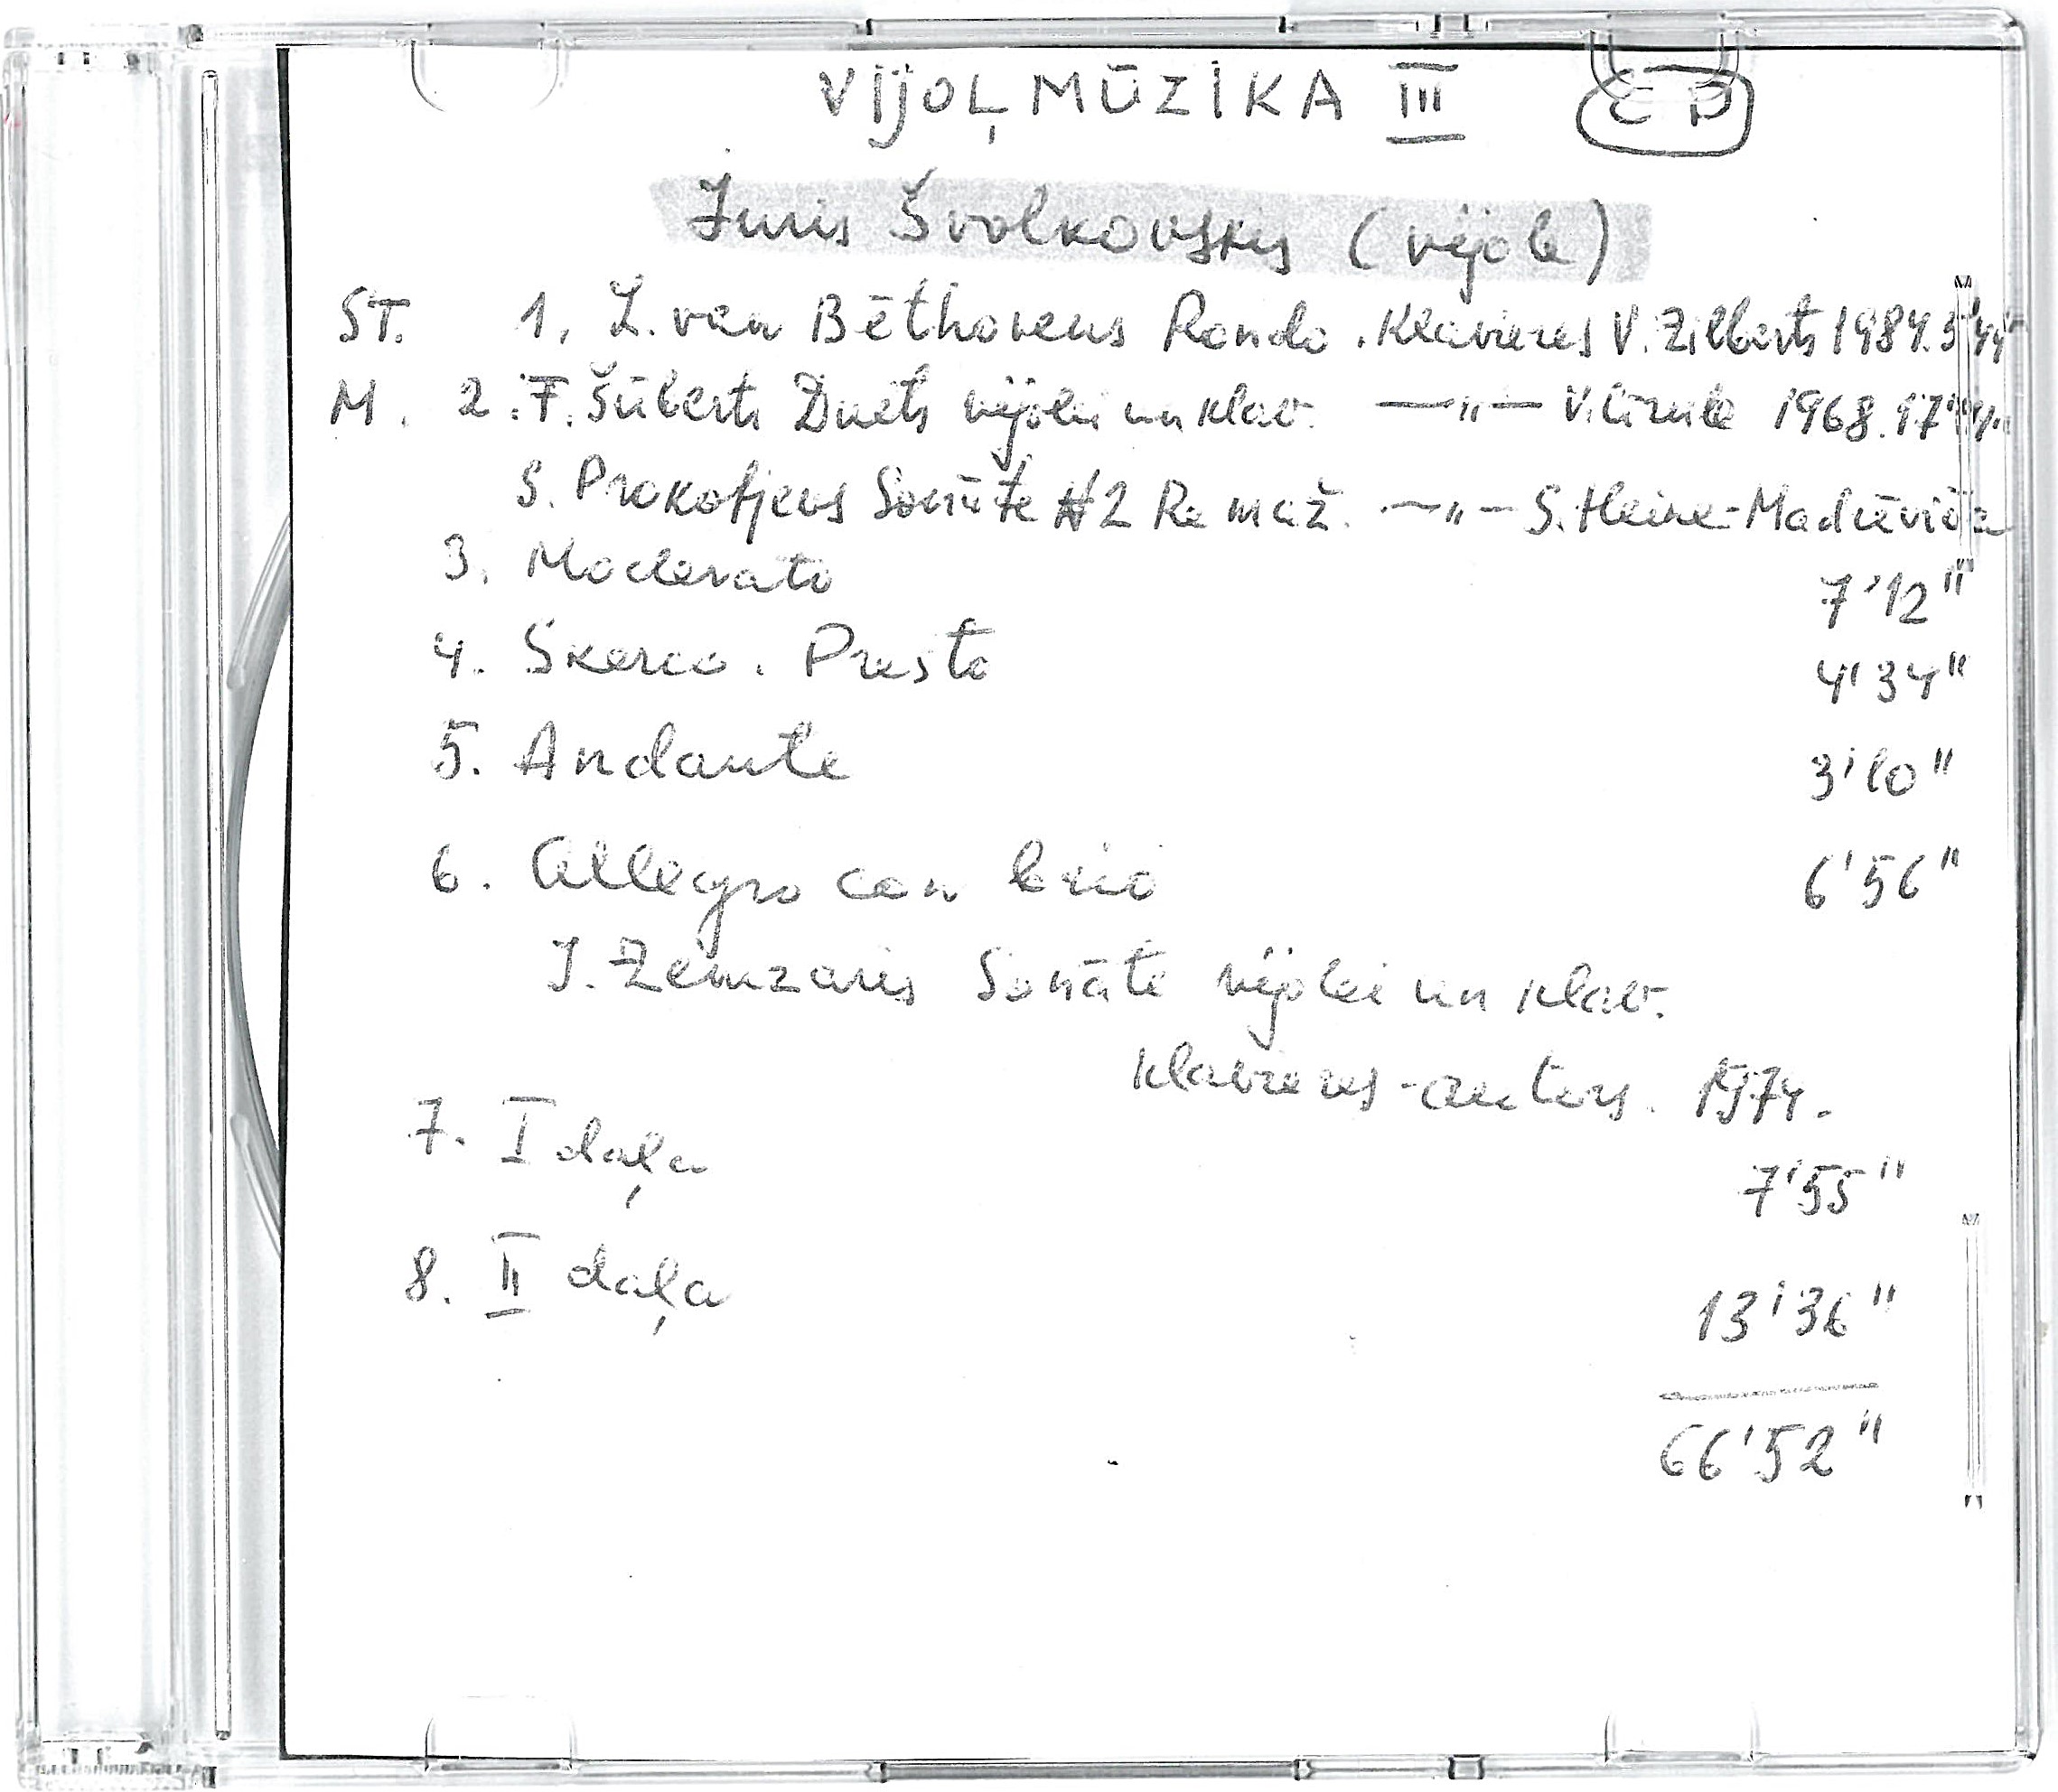 VIJOĻMŪZIKA III CD
Juris Švolkovskis (vijole)
ST. 1. L. van Bēthovens Rondo. Klavieres V. Zilberts 1984. 5'44"
M. 2. F. Šūberts Duets vijolei un klav. —„— V. Cīrule 1968. 17'
S. Prokofjevs Sonāte #2 Re maž. —„— S. Heine-
3. Moderato 7'12"
4. Skerco. Presto 4'34"
5. Andante 3'10"
6. Allegro con brio 6'56"
J. Zemzaris Sonāte vijolei un klav.
klavieres - autors. 1974.
7. I daļa 7'55"
8. II daļa 13'36"
66'52"